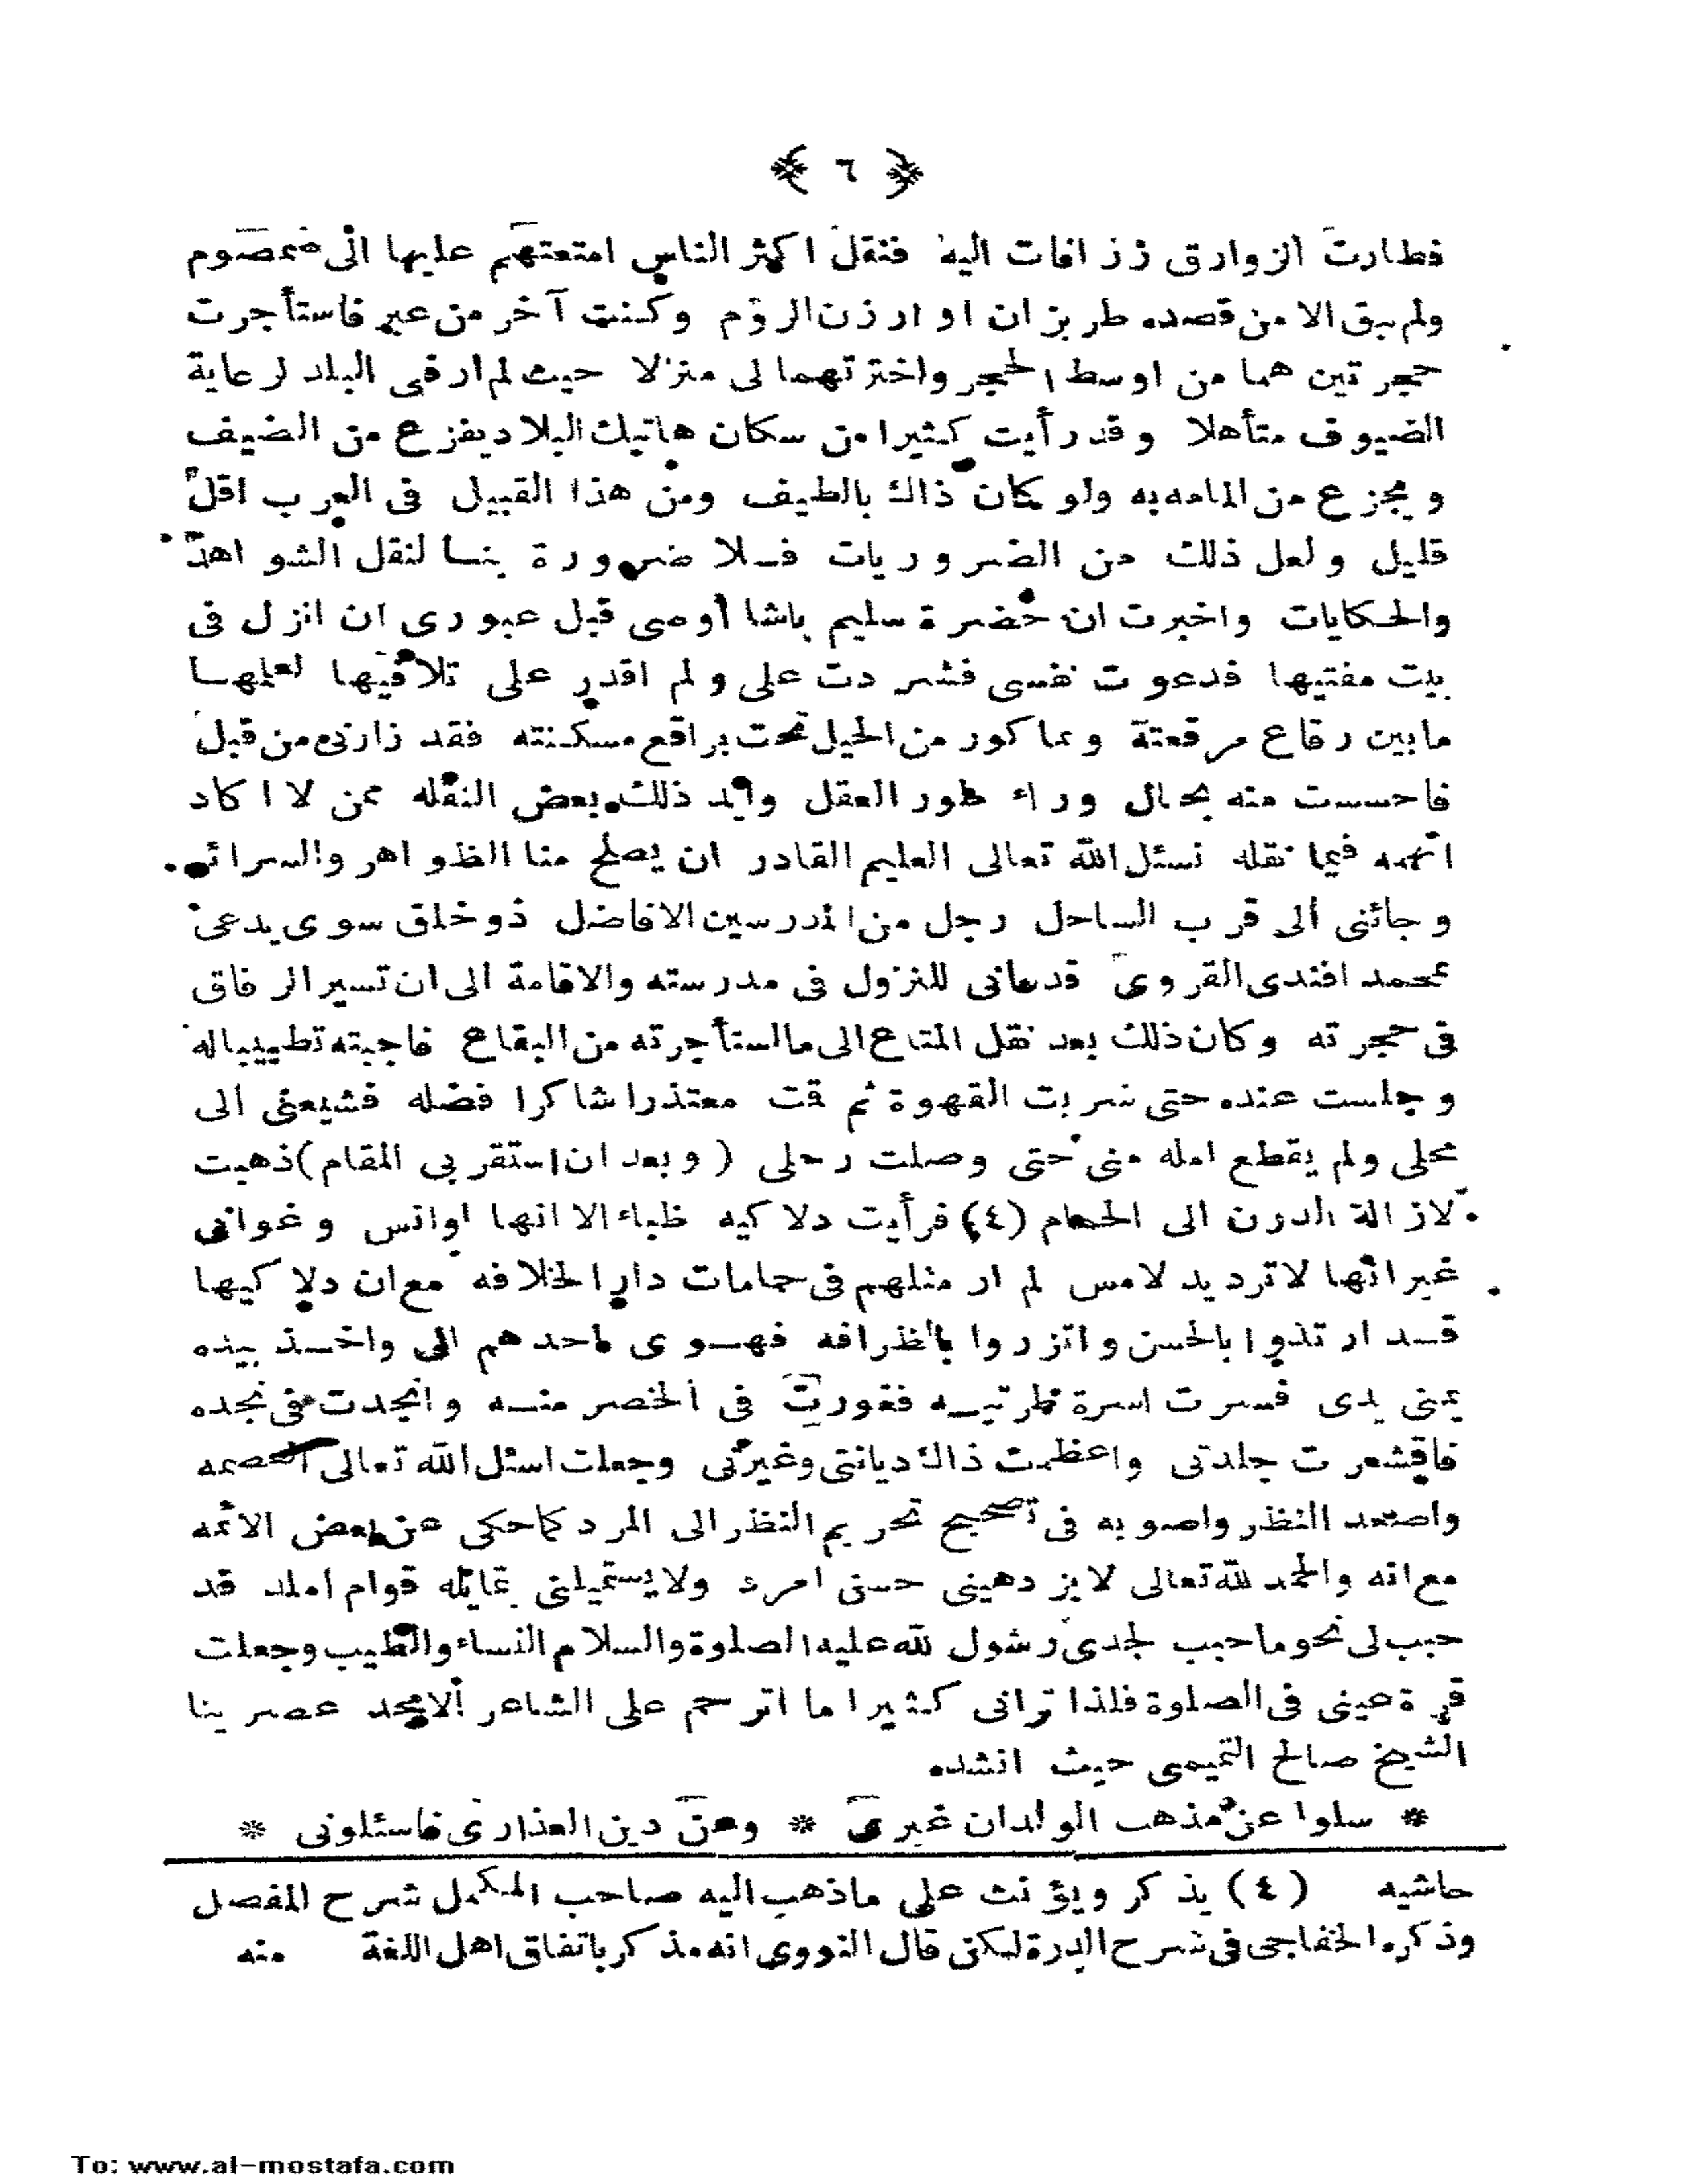 ﴿ ٦ ﴾
فطارت الزوارق زرافات اليه فنقل اكثر الناس امتعتهم عليها الى صمصوم
ولم يبق الا من قصده طربزان او ارزن الروم وكنت آخر من عبر فاستأجرت
حجرتين هما من اوسط الحجر واخترتهما لى منزلا حيث لم ار فى البلد لرعاية
الضيوف متأهلا وقد رأيت كثيرا من سكان هاتيك البلاد يفزع من الضيف
ويجزع من المامه به ولو كان ذاك بالطيف ومن هذا القبيل فى العرب اقل
قليل ولعل ذلك من الضروريات فلا ضرورة بنا لنقل الشواهد
والحكايات واخبرت ان حضرة سليم باشا أوصى قبل عبورى ان انزل فى
بيت مفتيها فدعوت نفسى فشردت على ولم اقدر على تلافيها لعلمها
مابين رقاع مرقعته وما كور من الحيل تحت براقع مسكنته فقد زارنى من قبل
فاحسست منه بحال وراء طور العقل وأيد ذلك بعض النقله ممن لا اكاد
اتهمه فيما نقله نسئل الله تعالى العليم القادر ان يصلح منا الظواهر والسرائر
وجائنى الى قرب الساحل رجل من المدرسين الافاضل ذو خلق سوى يدعى
بمحمد افندى القروى قد دعانى للنزول فى مدرسته والاقامة الى ان تسير الرفاق
فى حجرته وكان ذلك بعد نقل المتاع الى ما استأجرته من البقاع فاجبته تطييبا له
وجلست عنده حتى شربت القهوة ثم قمت معتذرا شاكرا فضله فشيعنى الى
محلى ولم يقطع امله منى حتى وصلت رحلى ( وبعد ان استقر بى المقام ) ذهبت
لازالة الدرن الى الحمام (٤) فرأيت دلاكيه ظباء الا انها اوانس وغوانى
غير انها لا ترد يد لامس لم ار مثلهم فى حمامات دار الخلافه مع ان دلاكيها
قد ارتدوا بالحسن واتزروا بالظرافه فهوى احدهم الى واخذ بيده
يمنى يدى فسرت اسرة طرتيه فغورت فى الخصر منه وانجدت فى نجده
فاقشعرت جلدتى واعظمت ذاك ديانتى وغيرتى وجعلت اسئل الله تعالى العصمه
واصعد النظر واصوبه فى تصحيح تحريم النظر الى المرد كما حكى عن بعض الائمه
مع انه والحمد لله تعالى لا يزدهينى حسن امرد ولا يستميلنى بتمايله قوام املد قد
حبب لى نحو ما حبب لجدى رسول لله عليه الصلوة والسلام النساء والطيب وجعلت
قرة عينى فى الصلوة فلذا ترانى كثيرا ما اترحم على الشاعر ألامجد عصرينا
الشيخ صالح التميمى حيث انشده
* سلوا عن مذهب الولدان غيرى * وعن دين العذارى فاسئلونى *
حاشيه (٤) يذكر ويؤنث على ماذهب اليه صاحب المكمل شرح المفصل
وذكره الخفاجى فى شرح الدرة لكن قال النووى انه مذكر باتفاق اهل اللغة منه
To: www.al-mostafa.com